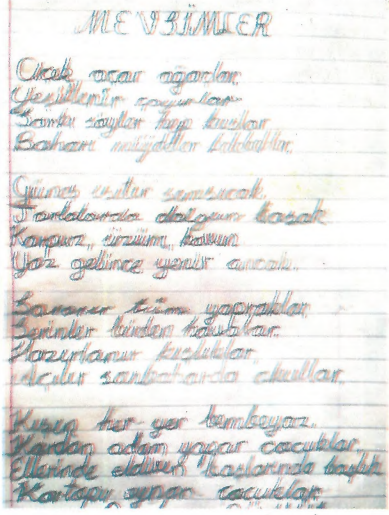 MEVSİMLER
Çiçek açar ağaçlar
Yeşillenir çayırlar
Şarkı söyler hep kuşlar
Baharı müjdeler kelebekler
Güneş ısıtır sımsıcak
Tarlalarda dolgun başak
Karpuz, üzüm, kavun
Yaz gelince yenir ancak.
Sararır tüm yapraklar
Serinler birden havalar.
Hazırlanır kışlıklar.
Açılır sonbaharda okullar.
Kışın her yer bembeyaz.
Kardan adam yapar çocuklar,
Ellerinde eldiven başlarında başlık
Kartopu oynar çocuklar